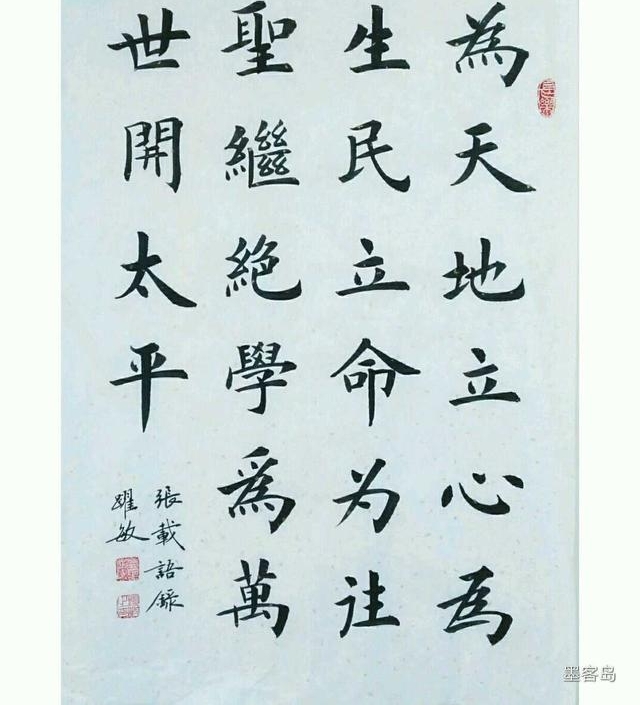 為天地立心為
生民立命为往
聖繼絕學爲萬
世開太平
張載語錄
躍敏
墨客岛